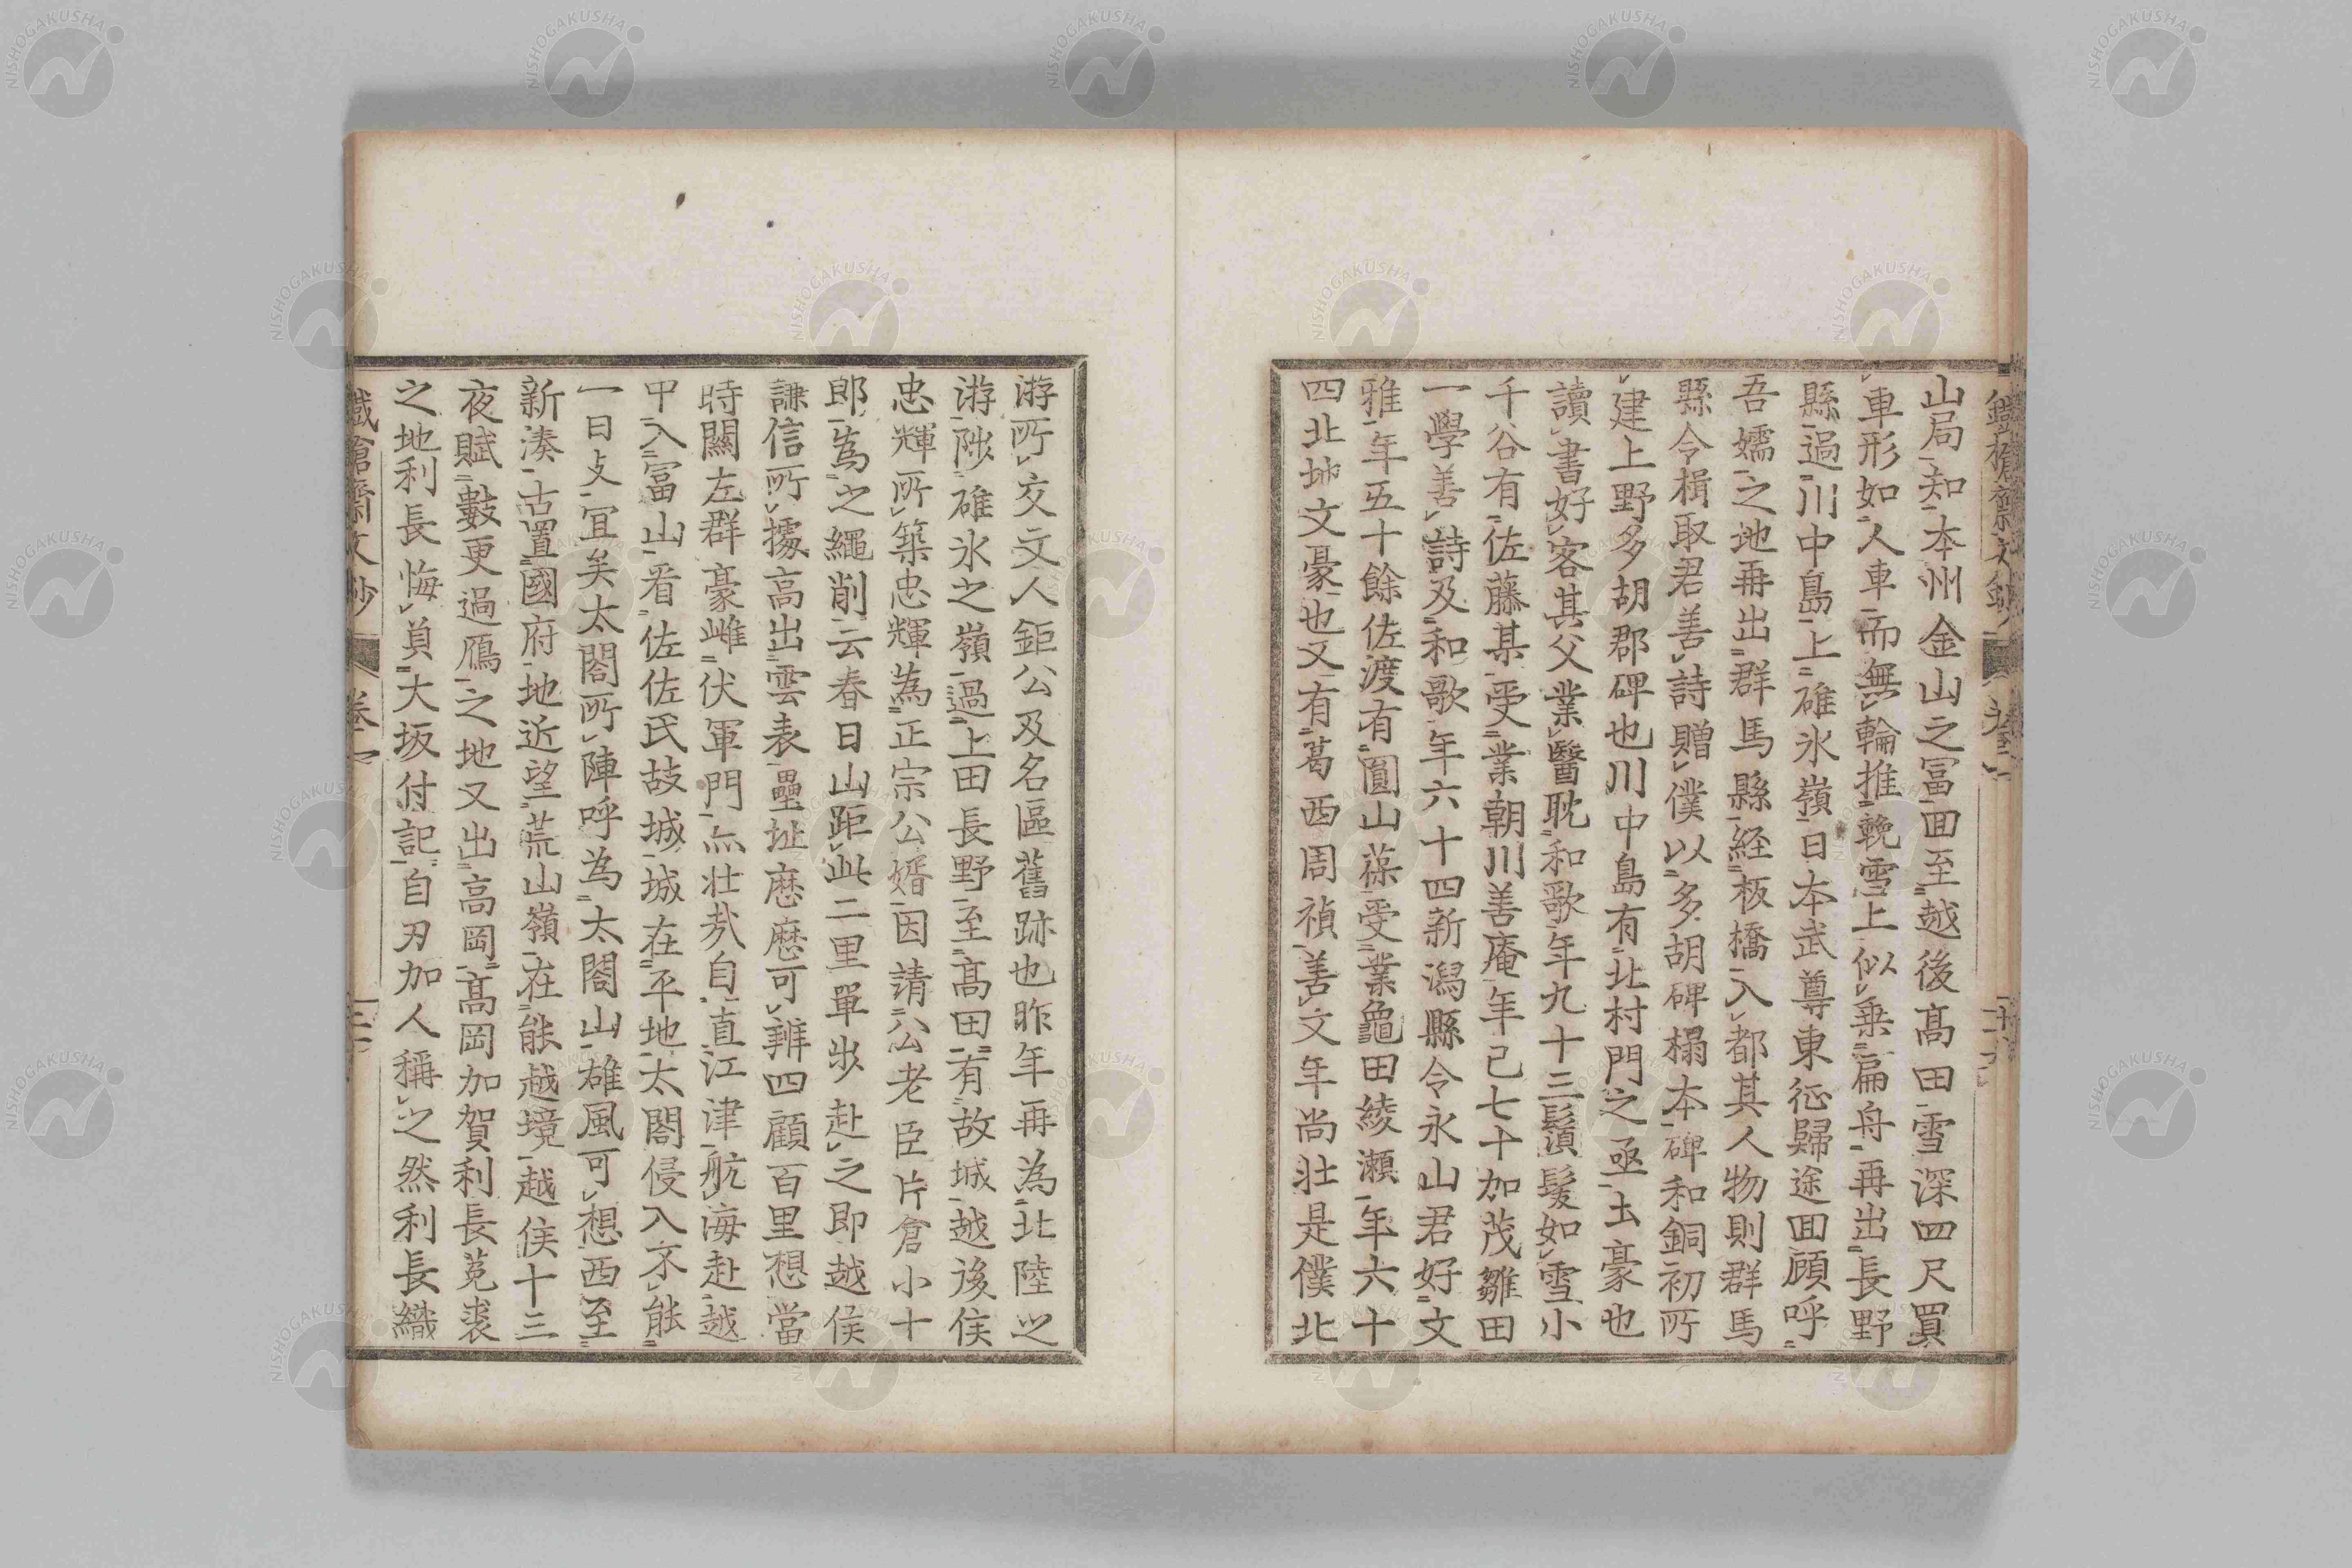 山局知本州金山之冨回至越後髙田雪深四尺買
車形如人車而無輪推輓雪上似乗扁舟再出長野
縣過川中島上碓氷嶺日本武尊東征歸途回顧呼
吾嬬之地再出群馬縣経板橋入都其人物則群馬
縣令楫取君善詩贈僕以多胡碑榻本碑和銅初所
建上野多胡郡碑也川中島有北村門之亟土豪也
讀書好客其父業醫耽和歌年九十三鬚髪如雪小
千谷有佐藤某受業朝川善庵年已七十加茂雛田
一學善詩及和歌年六十四新潟縣令永山君好文
雅年五十餘佐渡有圓山葆受業龜田綾瀬年六十
四北地文豪也又有葛西周禎善文年尚壮是僕北
游所交文人鉅公及名區舊跡也昨年再為北陸之
游陟碓氷之嶺過上田長野至髙田有故城越後侯
忠輝所築忠輝為正宗公婿因請公老臣片倉小十
郎為之繩削云春日山距此二里單步赴之即越侯
謙信所據高出雲表壘址歴歴可辨四顧百里想當
時關左群豪雌伏軍門亦壮㢤自直江津航海赴越
中入冨山看佐佐氏故城城在平地太閤侵入不能
一日攴冝矣太閤所陣呼為太閤山雄風可想西至
新湊古置國府地近望荒山嶺在能越境越侯十三
夜賦數更過鴈之地又出高岡髙岡加賀利長菟裘
之地利長悔負大坂付記自刃加人稱之然利長織